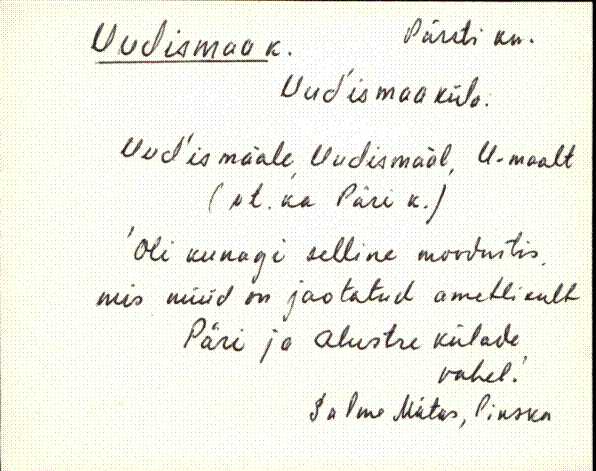 Uudismaa k. Pärsti kn.
Uud'ismaa küla.
Uud'ismäale Uudismääl, U-maalt
(vt. ka Päri k.)
'Oli kunagi selline moodustis,
mis nüüd on jaotatud ametlikult
Päri ja Alustre külade
vahel.'
Salme Mätas, Pinska